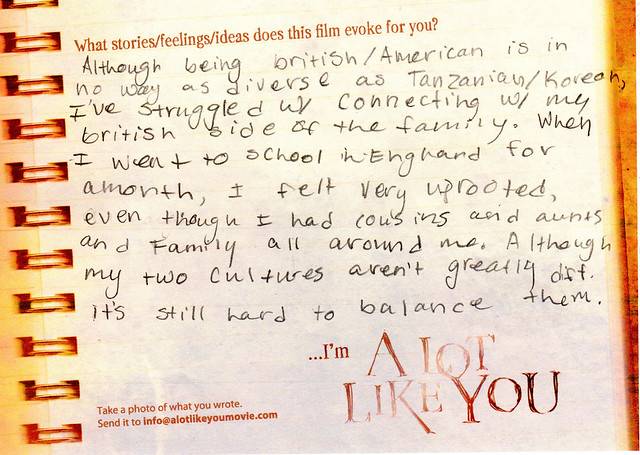 What stories/feelings/ideas does this film evoke for you?
Although being british/American is in
no way as diverse as Tanzanian/Korean,
I've struggled w/ connecting w/ my
british side of the family. When
I went to school in England for
a month, I felt very uprooted,
even though I had cousins and aunts
and Family all around me. Although
my two cultures aren't greatly diff.
it's still hard to balance them.
...I'm A LOT
LIKE YOU
Take a photo of what you wrote.
Send it to info@alotlikeyoumovie.com